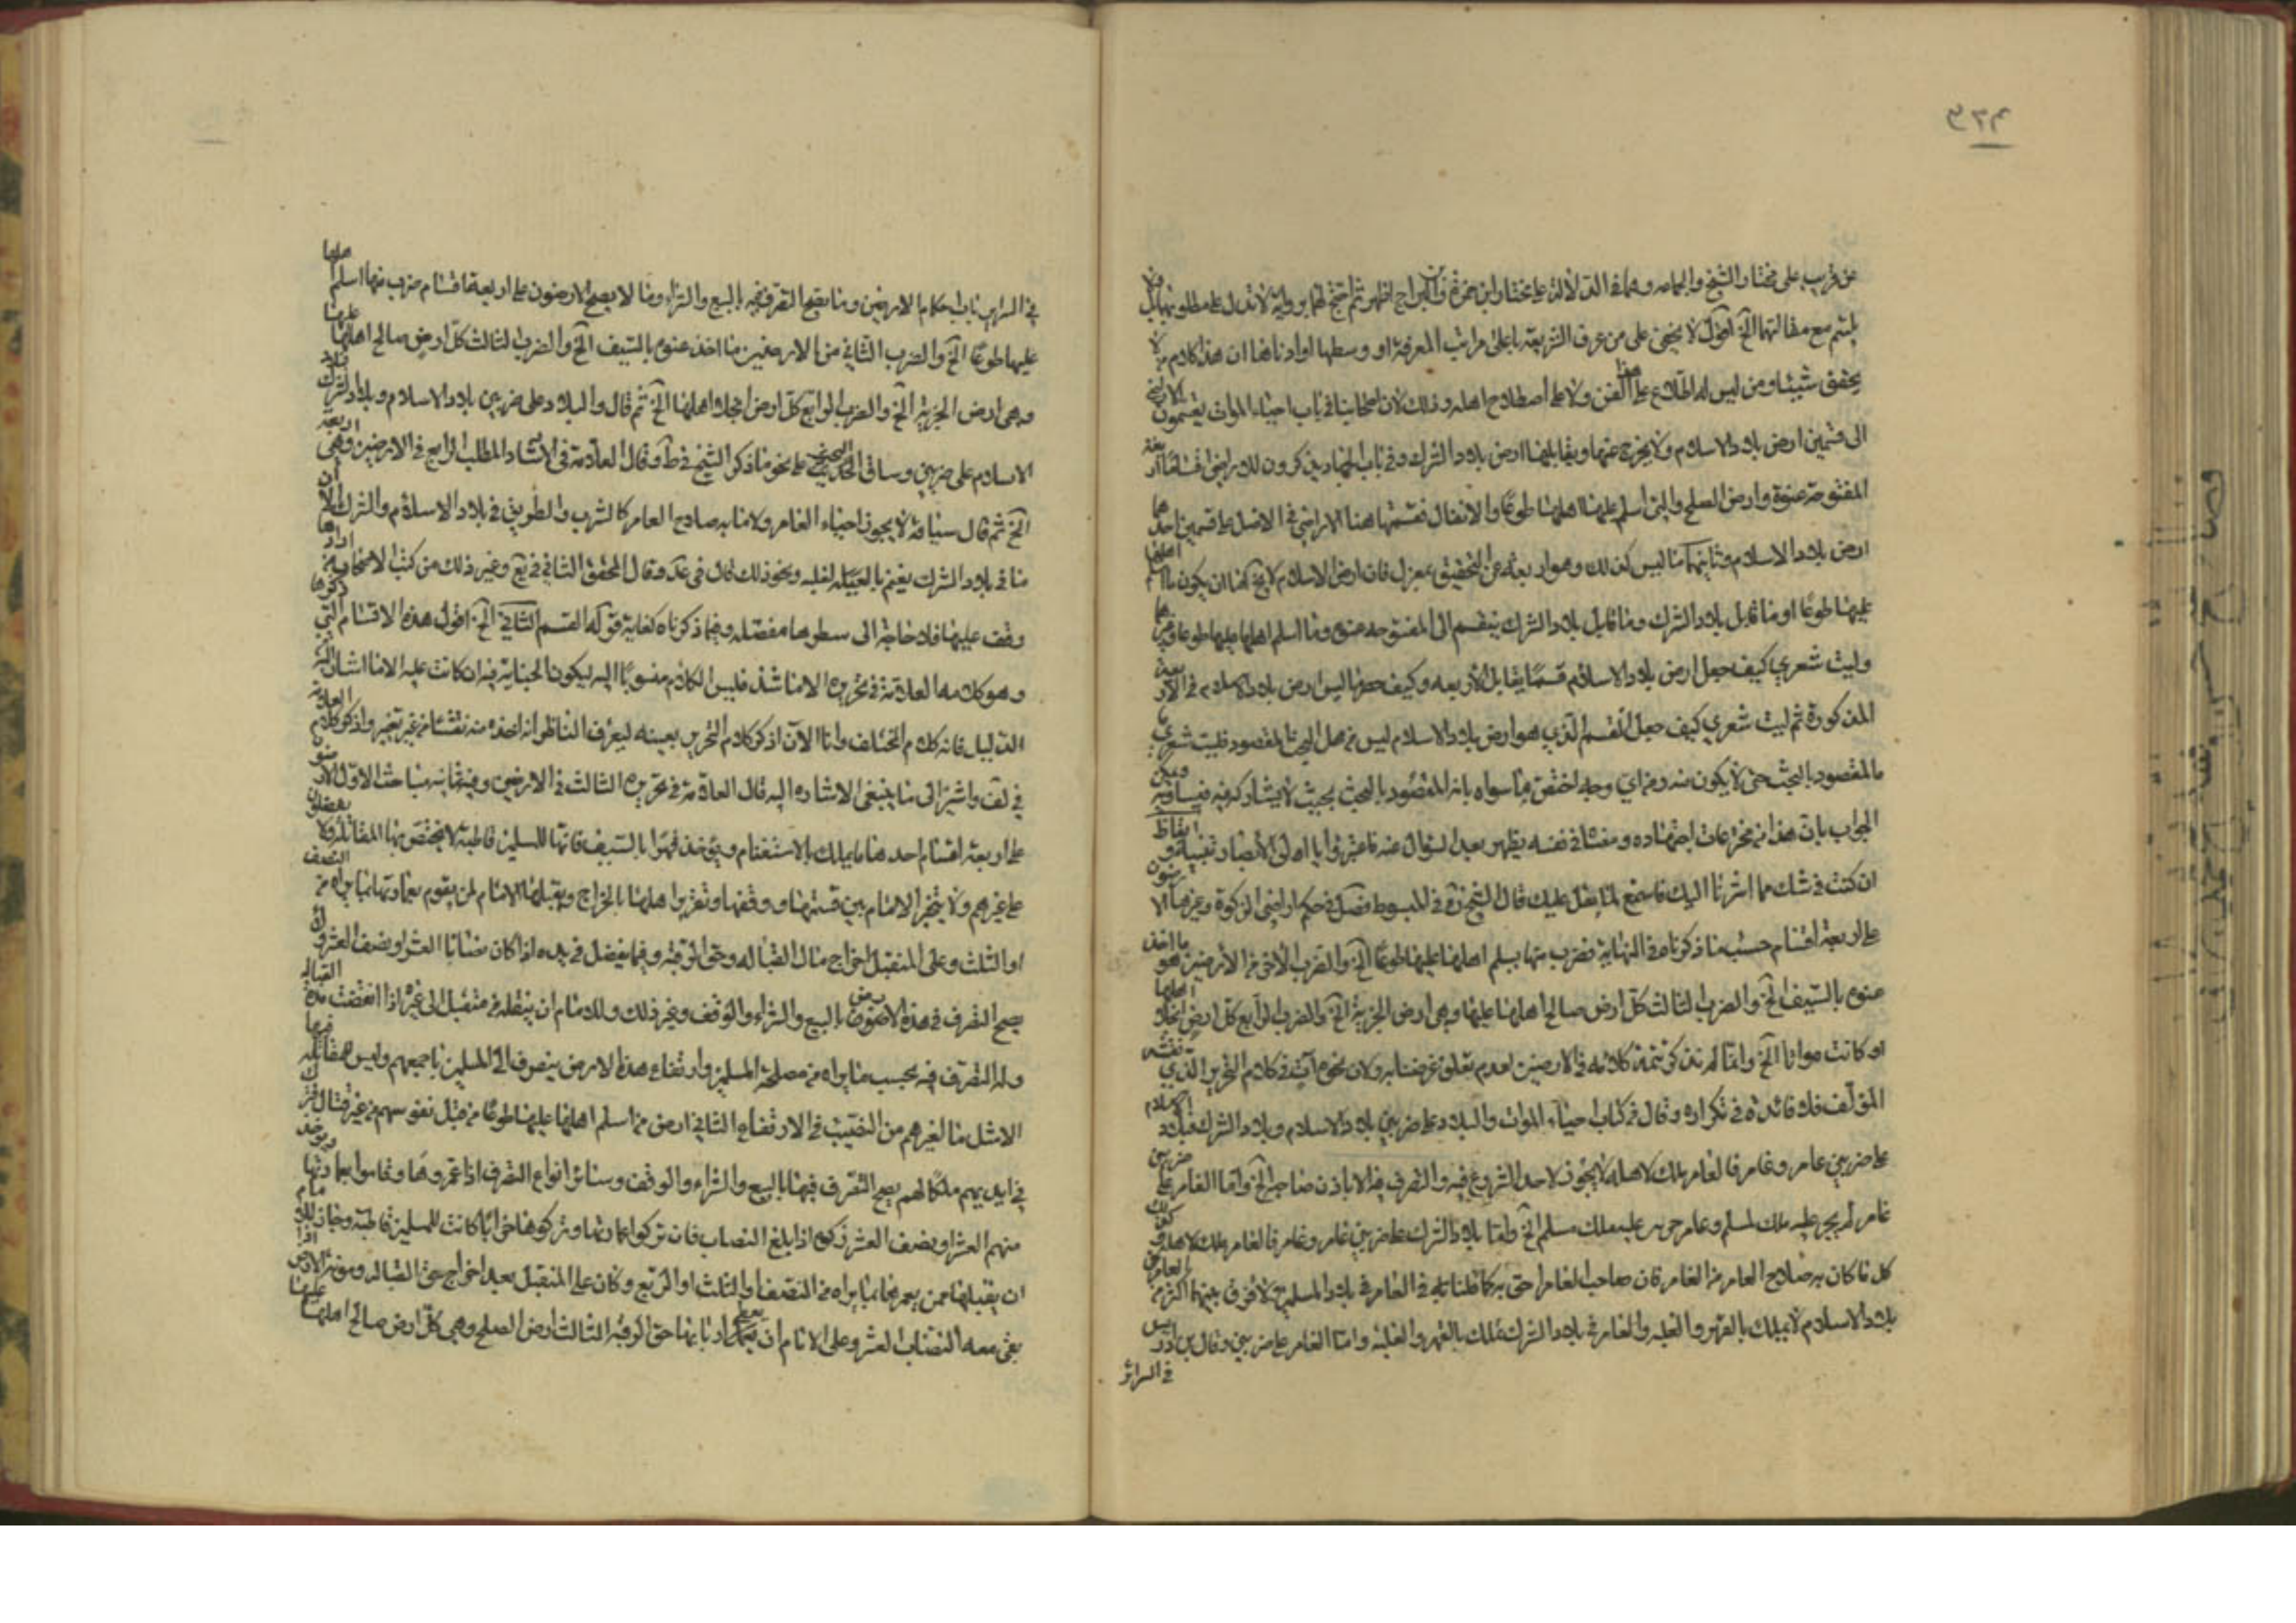 عن قريب على مختار الشيخ والجماعه وهاهنا الدلالة على مختار ابن حمزة وابن البراج اظهر ثم احتج لهما برواية لا تدل على مطلوبهما بل ولا
يلتئم مع مقالتهما الخ اقول لا يخفى على من عرف الشريعة باعلى مراتب المعرفة او وسطها او ادناها ان هذا كلام من لا
يحقق شيئا ومن ليس له اطلاع على هذا الفن ولا على اصطلاح اهله وذلك لان اصحابنا في باب احياء الموات يقسمون الاراضي
الى قسمين ارض بلاد الاسلام ولا يخرج عنها ويقابلها ارض بلاد الشرك وفي باب الجهاد يذكرون للاراضي اقساما اربعة
المفتوحة عنوة وارض الصلح والتي اسلم عليها اهلها طوعا والانفال فقسمتها هنا الاراضي في الاصل على قسمين احدهما
ارض بلاد الاسلام وثانيهما ما ليس كذلك وهو اربعة عن التحقيق بمعزل فان ارض الاسلام لا يخ اما ان يكون ما اسلم اهلها
عليها طوعا او ما قابل بلاد الشرك وما قابل بلاد الشرك ينقسم الى المفتوحه عنوه وما اسلم اهلها عليها طوعا وغيرهما
وليت شعري كيف جعل ارض بلاد الاسلام قسما يقابل الاربعه وكيف حصرنا ليس ارض بلاد الاسلام في الاربعة
المذكورة ثم ليت شعري كيف جعل القسم الذي هو ارض بلاد الاسلام ليس من محل البحث المقصود فليت شعري
ما المقصود بالبحث حتى لا يكون منه ومن اي وجه اختص ما سواه بانه المقصود بالبحث بحيث لا يشاركه فيه فيساويه ويمكن
الجواب بان هذا من مخترعات اجتهاده ومنشاه في نفسه يظهر بعد السؤال عنه فاعتبروا يا اولي الابصار تنبيه وايقاظ
ان كنت في شك مما اشرنا اليك فاسمع لما يتلى عليك قال الشيخ ره في المبسوط فصل في حكم اراضي الزكوة وغيرها الارضون
على اربعة اقسام حسب ما ذكرناه في النهاية فضرب منها يسلم اهلها عليها طوعا الخ والضرب الاخر من الارضين هو ما اخذ
عنوه بالسيف الخ والضرب الثالث كل ارض صالح اهلها عليها وهي ارض الجزية الخ والضرب الرابع كل ارض انجلا اهلها
او كانت مواتا الخ وانما لم نذكر تتمة كلامه في الارضين لعدم تعلق غرضنا به ولان نحوه آت في كلام التحرير الذي نقله
المؤلف فلا فائدة في تكراره وقال في كتاب احياء الموات والبلاد على ضربين بلاد الاسلام وبلاد الشرك فبلاد الاسلام
على ضربين عامر وغامر فالعامر ملك لاهله لا يجوز لاحد الشروع فيه والتصرف فيه الا باذن صاحبه الخ واما الغامر على ضربين
غامر لم يجر عليه ملك لمسلم وغامر جرى عليه ملك مسلم الخ واما بلاد الشرك على ضربين عامر وغامر فالعامر ملك لاهله وكذلك
كل ما كان به صلاح العامر من الغامر فان صاحب العامر احق به كما قلنا في العامر في بلاد المسلمين لا فرق بينهما اكثر من العامر في
بلاد الاسلام لا يملك بالقهر والغلبه والعامر في بلاد الشرك يملك بالقهر والغلبة واما الغامر على ضربين وقال ابن ادريس
في السرائر
في السرائر باب احكام الارضين وما يصح التصرف فيه بالبيع والشراء وما لا يصح الارضون على اربعة اقسام ضرب منها اسلم اهلها
عليها طوعا الخ والضرب الثاني من الارضين ما اخذ عنوه بالسيف الخ والضرب الثالث كل ارض صالح اهلها عليها
وهي ارض الجزية الخ والضرب الرابع كل ارض انجلا اهلها الخ ثم قال والبلاد على ضربين بلاد الاسلام وبلاد الشرك فبلاد
الاسلام على ضربين وساق البحث على نحو ما ذكر الشيخ في ط وقال العلامة في الارشاد المطلب الرابع في الارضين وهي اربعة
الخ ثم قال سياقه لا يجوز احياء العامر ولا ما به صلاح العامر كالشرب والطريق في بلاد الاسلام والشرك الا ان
ما في بلاد الشرك يغنم بالغلبه ونحو ذلك قال في عد وقال المحقق الثاني في يع وغير ذلك من كتب الاصحاب من ارادها
وقف عليها فلا حاجة الى سطرها مفصله وفيما ذكرناه كفاية قوله القسم الثاني الخ اقول هذه الاقسام التي ذكرها
وهو كلامه العلامة في تحريره الا ما شذ فليس الكلام منسوبا اليه ليكون الجناية فيه ان كانت عليه الا ما اشار اليه من
الدليل فانه كلام المختلف وانا الآن اذكر كلام التحرير بعينه ليعرف الناظر انه اخذه منه نقشا من غير تغيير واذكر كلام العلامة
في لف واشير الى ما ينبغي الاشاره اليه قال العلامة في تحريره الثالث في الارضين وفيه مباحث الاول الارضون
على اربعة اقسام احدها ما يملك بالاستغنام ويؤخذ قهرا بالسيف فانها للمسلمين قاطبة لا يختص بها المقاتله ولا يفضلون
على غيرهم ولا يتخير الامام بين قسمتها ووقفها وتقرير اهلها بالخراج ويقبلها الامام لمن يقوم بعمارتها بما يراه من النصف
او الثلث وعلى المتقبل اخراج مال القباله وحق الرقبة وفيما يفضل في يده اذا كان نصابا العشر او نصف العشر ولا
يصح التصرف في هذه الارض بالبيع والشراء والوقف وغير ذلك وللامام ان ينقله من متقبل الى غيره اذا انقضت مدة القباله
وله التصرف فيه بحسب ما يراه من مصلحة المسلمين وارتفاع هذه الارض ينصرف الى المسلمين باجمعهم وليس للمقاتله فيها
الا مثل ما لغيرهم من النصيب في الارتفاع الثاني ارض من اسلم اهلها عليها طوعا من قبل نفوسهم من غير قتال فترك
في ايديهم ملكا لهم يصح التصرف فيها بالبيع والشراء والوقف وسائر انواع التصرف اذا عمروها وقاموا بعمارتها ويؤخذ
منهم العشر او نصف العشر زكوة اذا بلغ النصاب فان تركوا عمارتها وتركوها خرابا كانت للمسلمين قاطبة وجاز للامام
ان يقبلها ممن يعمرها بما يراه من النصف او الثلث او الربع وكان على المتقبل بعد اخراج حق القباله ومؤنة الارض اذا
بقي معه النصاب العشر وعلى الامام ان يعطي اربابها حق الرقبة الثالث ارض الصلح وهي كل ارض صالح اهلها عليها